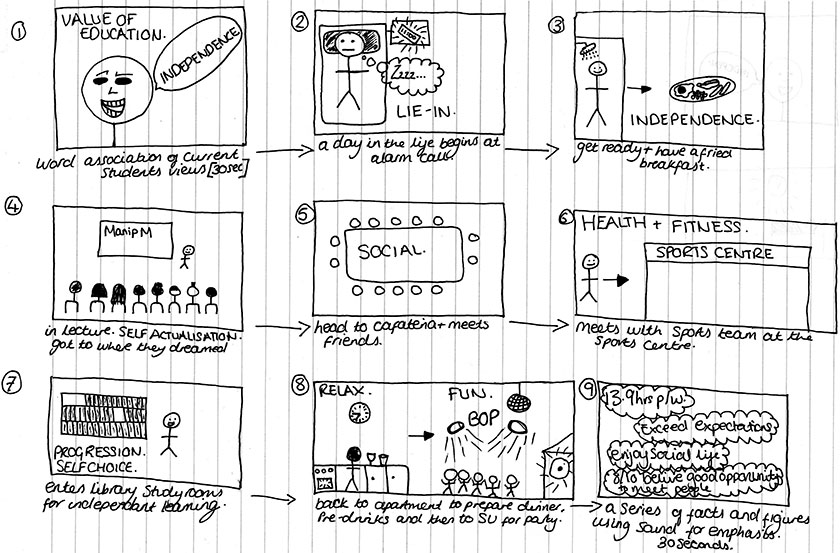 ①
VALUE OF
EDUCATION.
INDEPENDENCE
Word association of current
students views [30sec]
②
Zzzz...
LIE-IN.
a day in the life begins at
alarm call.
③
INDEPENDENCE.
get ready + have a fried
breakfast.
④
Manip M
in lecture. SELF ACTUALISATION.
got to where they dreamed
⑤
SOCIAL.
head to cafateria + meets
friends.
⑥
HEALTH + FITNESS.
SPORTS CENTRE
meets with sports team at the
Sports Centre.
⑦
PROGRESSION.
SELFCHOICE.
enters library study rooms
for independant learning.
⑧
RELAX.
FUN.
BOP
back to apartment to prepare dinner,
Pre-drinks and then to SU for party.
⑨
13.9hrs p/w.
Exceed expectations
enjoy social life
8/10 belive good opportunity
to meet people
a series of facts and figures
using sound for emphasis.
30seconds.